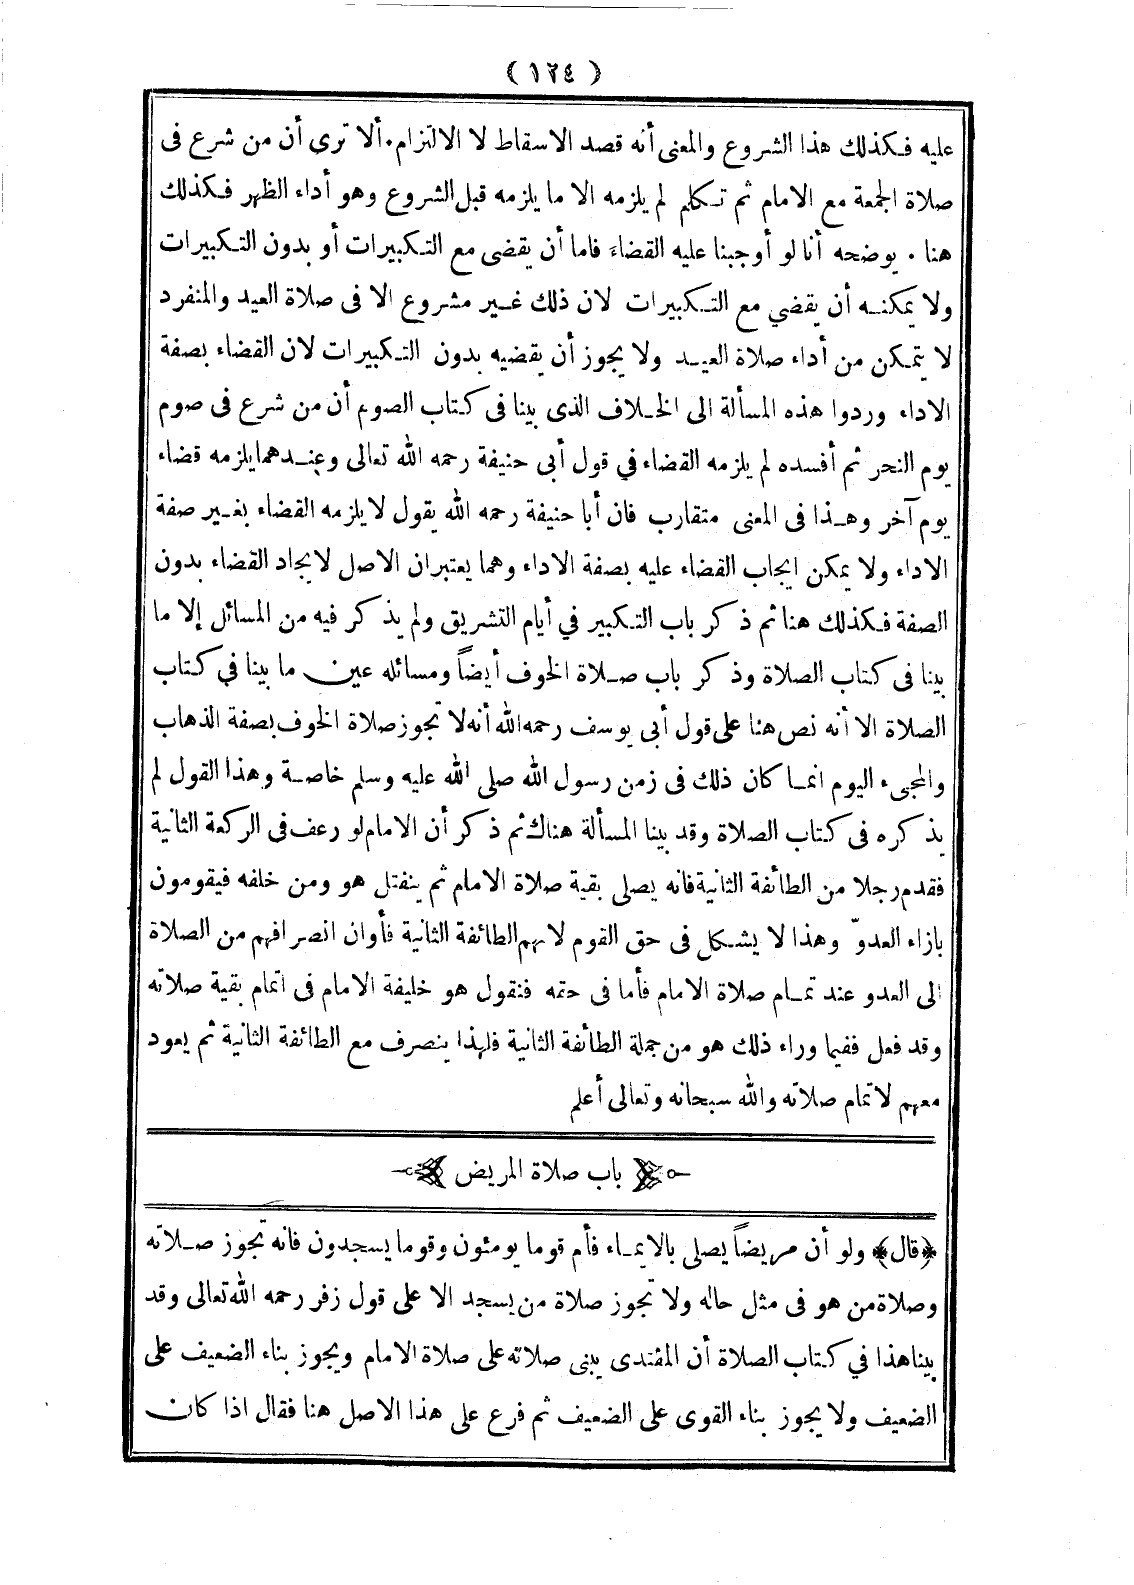 (١٢٤)
عليه فكذلك هذا الشروع والمعنى أنه قصد الاسقاط لا الالتزام. ألا ترى أن من شرع فى
صلاة الجمعة مع الامام ثم تكلم لم يلزمه الا ما يلزمه قبل الشروع وهو أداء الظهر فكذلك
هنا . يوضحه أنا لو أوجبنا عليه القضاء فاما أن يقضى مع التكبيرات أو بدون التكبيرات
ولا يمكنه أن يقضي مع التكبيرات لان ذلك غير مشروع الا فى صلاة العيد والمنفرد
لا يتمكن من أداء صلاة العيد ولا يجوز أن يقضيه بدون التكبيرات لان القضاء بصفة
الاداء وردوا هذه المسألة الى الخلاف الذى بينا فى كتاب الصوم أن من شرع فى صوم
يوم النحر ثم أفسده لم يلزمه القضاء في قول أبى حنيفة رحمه الله تعالى وعندهما يلزمه قضاء
يوم آخر وهذا فى المعنى متقارب فان أبا حنيفة رحمه الله يقول لا يلزمه القضاء بغير صفة
الاداء ولا يمكن ايجاب القضاء عليه بصفة الاداء وهما يعتبران الاصل لايجاد القضاء بدون
الصفة فكذلك هنا ثم ذكر باب التكبير في أيام التشريق ولم يذكر فيه من المسائل إلا ما
بينا فى كتاب الصلاة وذكر باب صلاة الخوف أيضاً ومسائله عين ما بينا في كتاب
الصلاة الا أنه نص هنا على قول أبى يوسف رحمه الله أنه لا تجوز صلاة الخوف بصفة الذهاب
والمجىء اليوم انما كان ذلك فى زمن رسول الله صلى الله عليه وسلم خاصة وهذا القول لم
يذكره فى كتاب الصلاة وقد بينا المسألة هناك ثم ذكر أن الامام لو رعف فى الركعة الثانية
فقدم رجلا من الطائفة الثانية فانه يصلى بقية صلاة الامام ثم ينفتل هو ومن خلفه فيقومون
بازاء العدوّ وهذا لا يشكل فى حق القوم لانهم الطائفة الثانية فأوان انصرافهم من الصلاة
الى العدو عند تمام صلاة الامام فأما فى حقه فنقول هو خليفة الامام فى اتمام بقية صلاته
وقد فعل ففيما وراء ذلك هو من جملة الطائفة الثانية فلهذا ينصرف مع الطائفة الثانية ثم يعود
معهم لاتمام صلاته والله سبحانه وتعالى أعلم
باب صلاة المريض
﴿قال﴾ ولو أن مريضاً يصلى بالايماء فأم قوما يومئون وقوما يسجدون فانه تجوز صلاته
وصلاة من هو فى مثل حاله ولا تجوز صلاة من يسجد الا على قول زفر رحمه الله تعالى وقد
بينا هذا في كتاب الصلاة أن المقتدى يبنى صلاته على صلاة الامام ويجوز بناء الضعيف على
الضعيف ولا يجوز بناء القوى على الضعيف ثم فرع على هذا الاصل هنا فقال اذا كان